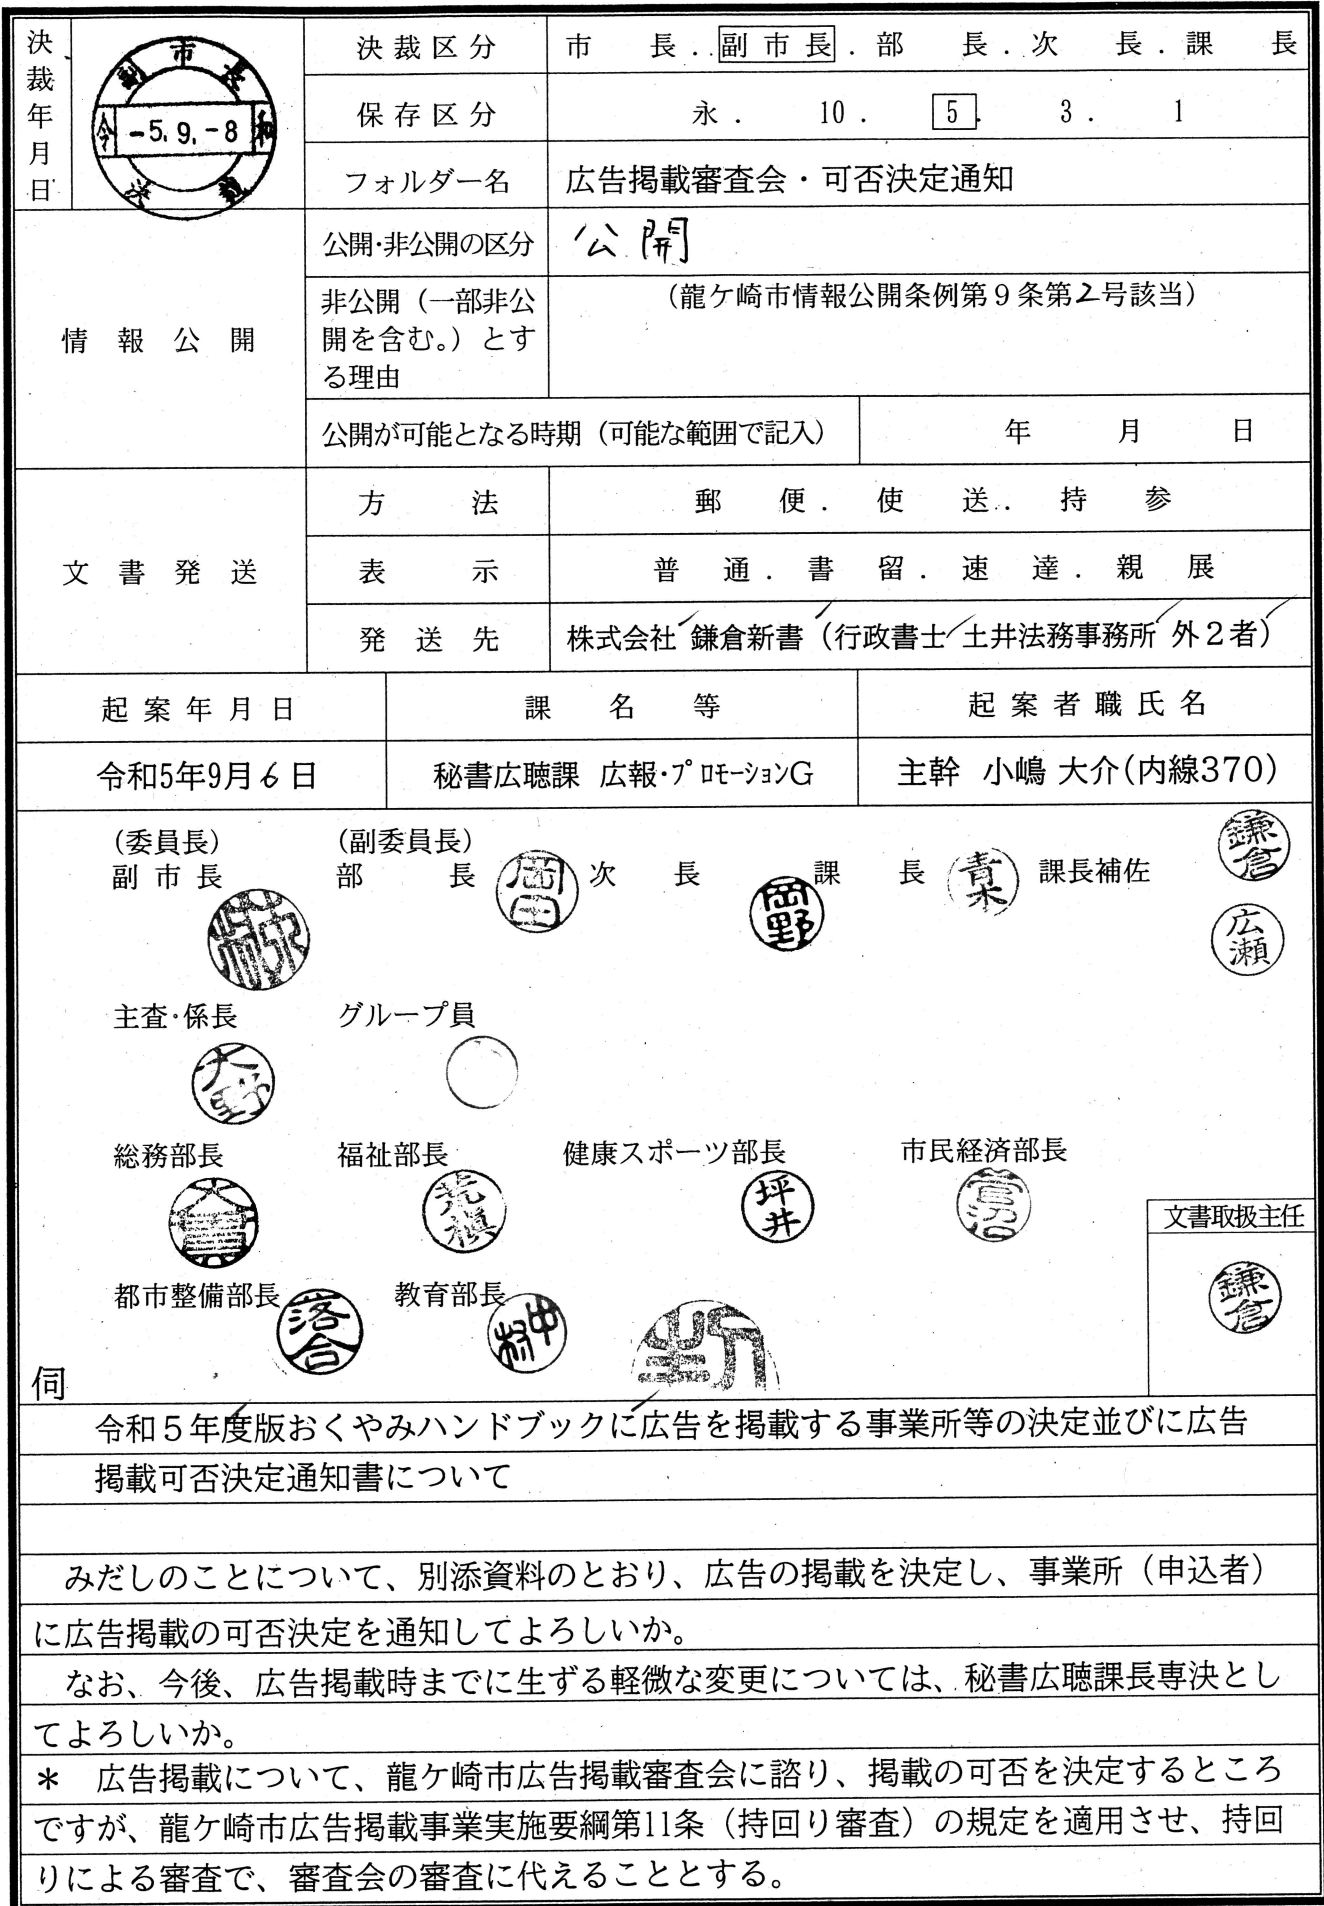 決裁年月日
副市長
令和
-5.9.-8
決裁
決裁区分
市長．副市長．部長．次長．課長
保存区分
永． 10． 5． 3． 1
フォルダー名
広告掲載審査会・可否決定通知
情報公開
公開・非公開の区分
公開
非公開（一部非公
開を含む。）とす
る理由
（龍ケ崎市情報公開条例第９条第2号該当）
公開が可能となる時期（可能な範囲で記入）
年 月 日
文書発送
方法
郵便．使送．持参
表示
普通．書留．速達．親展
発送先
株式会社 鎌倉新書（行政書士 土井法務事務所 外２者）
起案年月日
課名等
起案者職氏名
令和5年9月6日
秘書広聴課 広報・プロモーションG
主幹 小嶋 大介(内線370)
（委員長）
副市長
（副委員長）
部長
岡田
次長
岡野
課長
青木
課長補佐
鎌倉
広瀬
主査・係長
大野
グループ員
総務部長
福祉部長
荒槇
健康スポーツ部長
坪井
市民経済部長
菅沼
文書取扱主任
鎌倉
都市整備部長
落合
教育部長
中村
伺
令和５年度版おくやみハンドブックに広告を掲載する事業所等の決定並びに広告
掲載可否決定通知書について
みだしのことについて、別添資料のとおり、広告の掲載を決定し、事業所（申込者）
に広告掲載の可否決定を通知してよろしいか。
なお、今後、広告掲載時までに生ずる軽微な変更については、秘書広聴課長専決とし
てよろしいか。
＊ 広告掲載について、龍ケ崎市広告掲載審査会に諮り、掲載の可否を決定するところ
ですが、龍ケ崎市広告掲載事業実施要綱第11条（持回り審査）の規定を適用させ、持回
りによる審査で、審査会の審査に代えることとする。